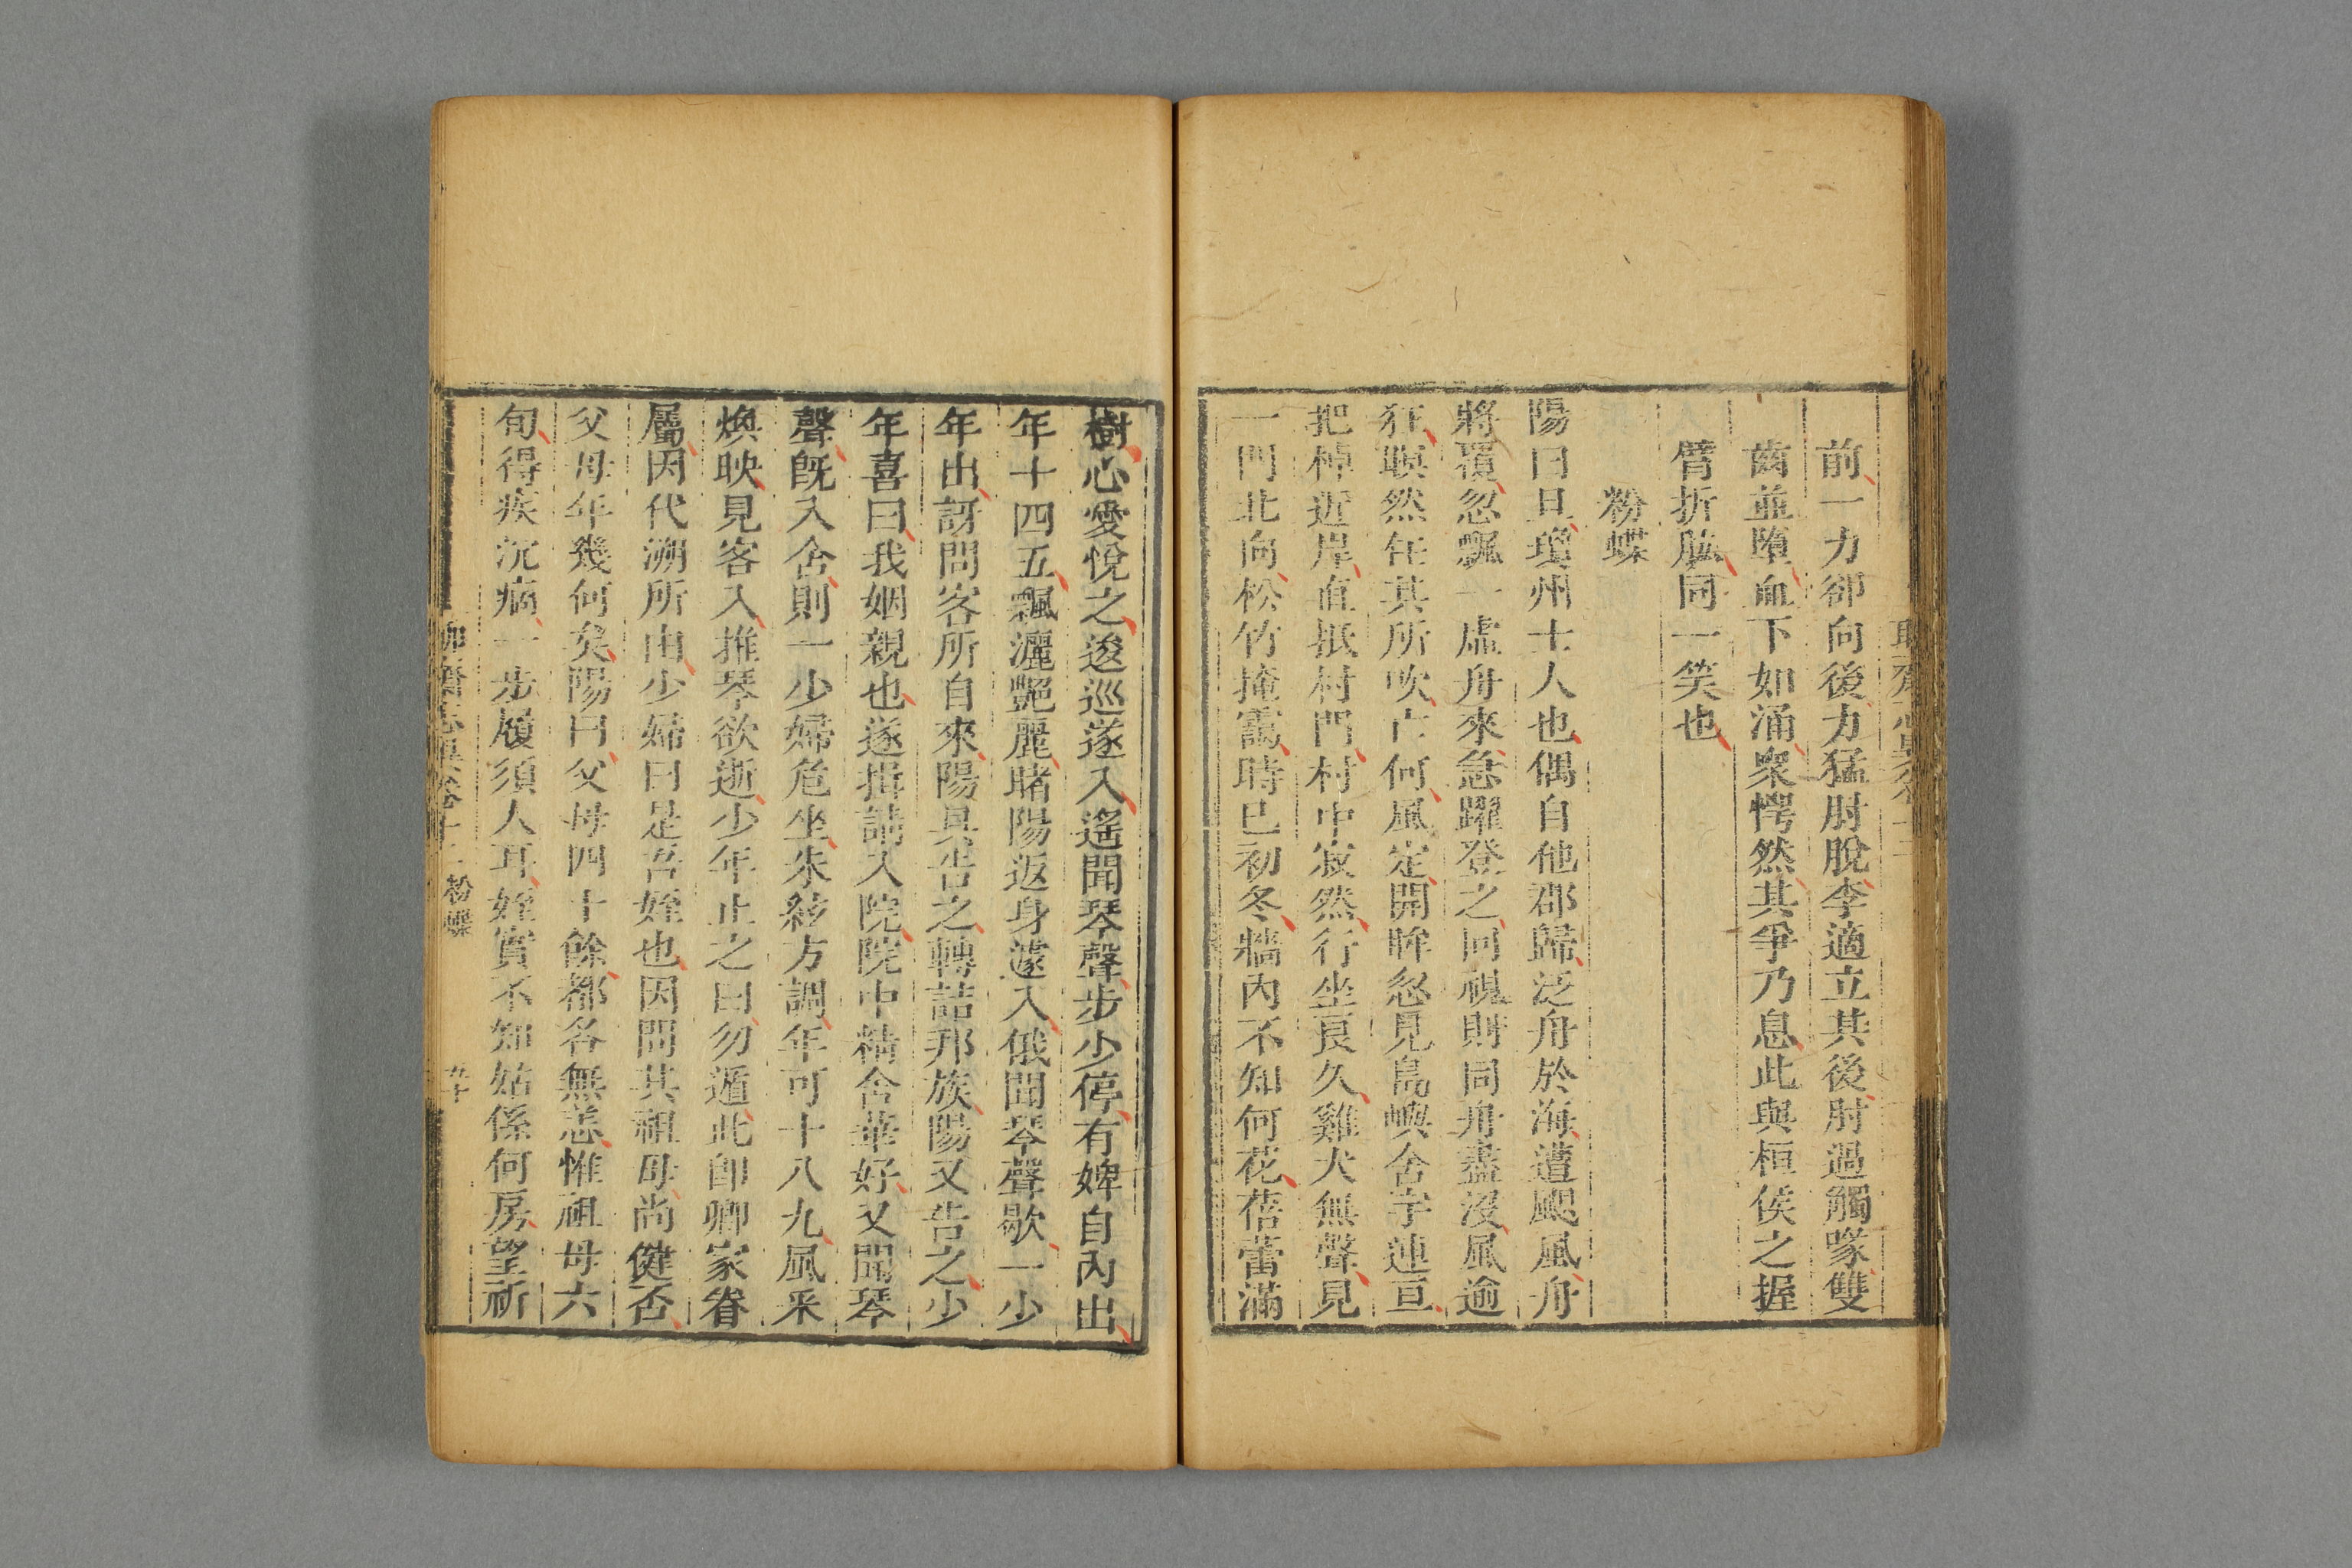 前一力卻向後力猛肘脫李適立其後肘過觸喙雙
齒並墮血下如涌衆愕然其爭乃息此與桓侯之握
臂折肱同一笑也
粉蝶
陽曰旦瓊州士人也偶自他郡歸泛舟於海遭颶風舟
將覆忽飄一虛舟來急躍登之回視則同舟盡沒風逾
狂瞑然任其所吹亡何風定開眸忽見島嶼舍宇連亘
把棹近岸直抵村門村中寂然行坐良久雞犬無聲見
一門北向松竹掩靄時巳初冬牆內不知何花蓓蕾滿
樹心愛悅之逡巡遂入遙聞琴聲步少停有婢自內出
年十四五飄灑艷麗睹陽返身遽入俄聞琴聲歇一少
年出訝問客所自來陽具告之轉詰邦族陽又告之少
年喜曰我姻親也遂揖請入院院中精舍華好又聞琴
聲旣入舍則一少婦危坐朱絃方調年可十八九風采
煥映見客入推琴欲逝少年止之曰勿遁此卽卿家眷
屬因代溯所由少婦曰是吾姪也因問其祖母尚健否
父母年幾何矣陽曰父母四十餘都各無恙惟祖母六
旬得疾沉痼一步履須人耳姪實不知姑係何房望祈
聊齋志異卷十二 粉蝶 五十